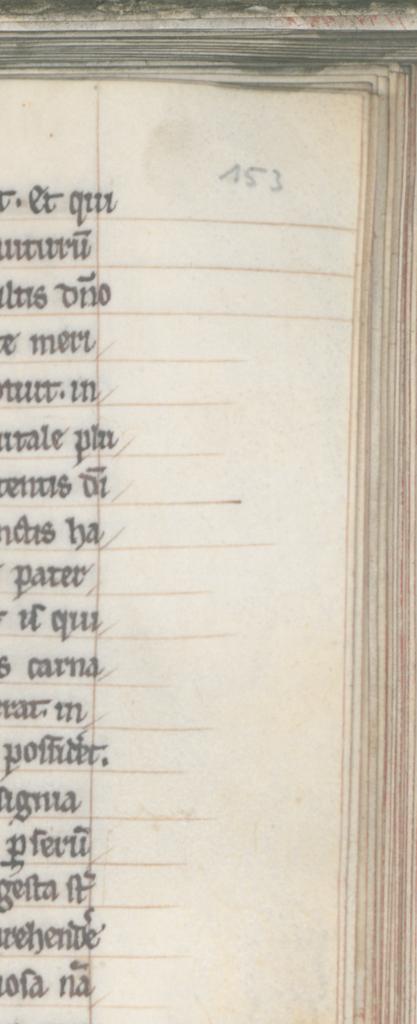 153
t. et qui
uiturū
ultis dn̄o
te meri
otuit. in
uitale plu
tentis dī
nctis ha
pater
is qui
s carna
rat in
possidet.
signia
ꝑserū
gesta st̄
rehendē
uosa nā